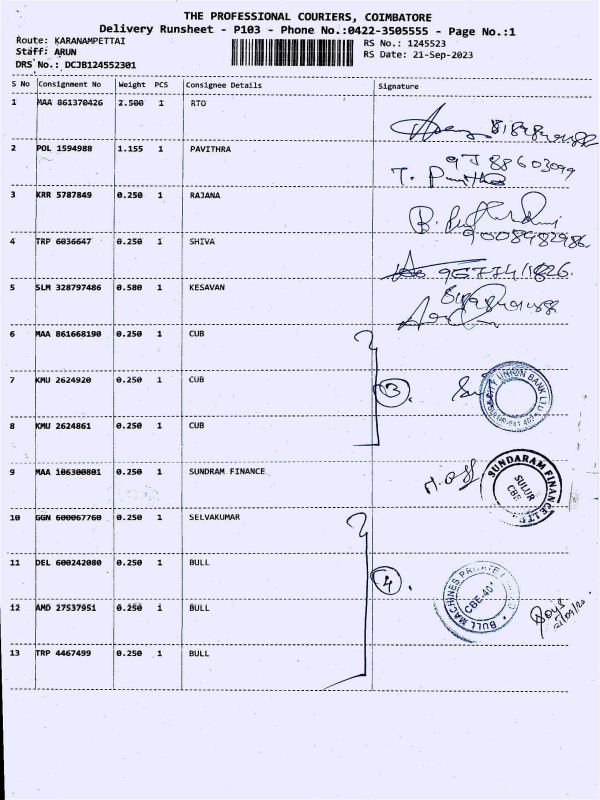 THE PROFESSIONAL COURIERS, COIMBATORE
Delivery Runsheet - P103 - Phone No.:0422-3505555 - Page No.:1
Route: KARANAMPETTAI
Staff: ARUN
DRS No.: DCJB124552301
RS No.: 1245523
RS Date: 21-Sep-2023
S No Consignment No Weight PCS Consignee Details Signature
1 MAA 861370426 2.500 1 RTO
2 POL 1594988 1.155 1 PAVITHRA
9788603099
T.
3 KRR 5787849 0.250 1 RAJANA
B.
9008982986
4 TRP 6036647 0.250 1 SHIVA
5 SLM 328797486 0.580 1 KESAVAN
6 MAA 861668190 0.250 1 CUB
7 KMU 2624920 0.250 1 CUB
3
CITY UNION BANK LTD
8 KMU 2624861 0.250 1 CUB
9 MAA 106300801 0.250 1 SUNDRAM FINANCE
SUNDARAM FINANCE LTD
SULUR
CBE
10 GGN 600067760 0.250 1 SELVAKUMAR
11 DEL 600242080 0.250 1 BULL
4.
BULL MACHINES PRIVATE
12 AMD 27537951 0.250 1 BULL
13 TRP 4467499 0.250 1 BULL